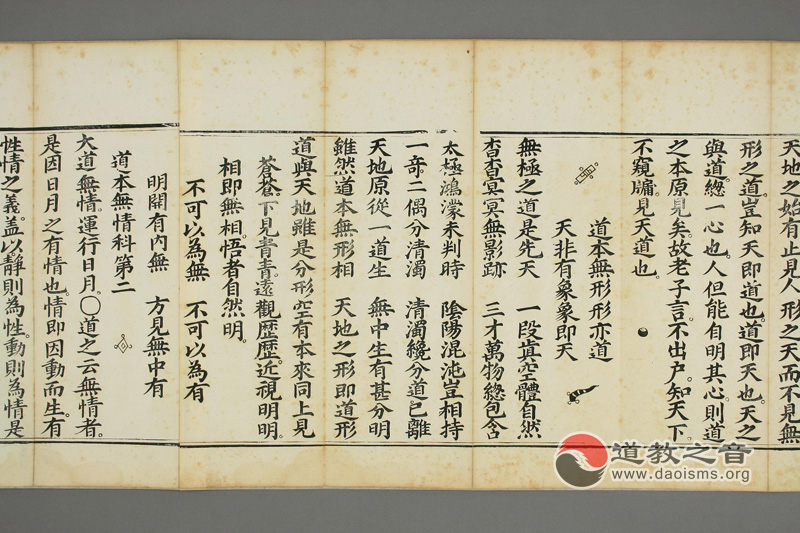 天地之始有止見人形之天而不見無
形之道豈知天即道也道即天也天之
與道總一心也人但能自明其心則道
之本原見矣故老子言不出户知天下
不窺牖見天道也
道本無形形亦道
天非有象象即天
無極之道是先天 一段真空體自然
杳杳冥冥無影跡 三才萬物總包含
太極鴻濛未判時 陰陽混沌豈相持
一奇二偶分清濁 清濁纔分道已離
天地原從一道生 無中生有甚分明
雖然道本無形相 天地之形即道形
道與天地雖是分形空有本來同上見
蒼蒼下見青青遠觀歷歷近視明明
相即無相悟者自然明
不可以為無 不可以為有
明開有內無 方見無中有
道本無情科第二
大道無情運行日月〇道之云無情者
是因日月之有情也情即因動而生有
性情之義蓋以靜則為性動則為情是
道教之音
www.daoisms.org